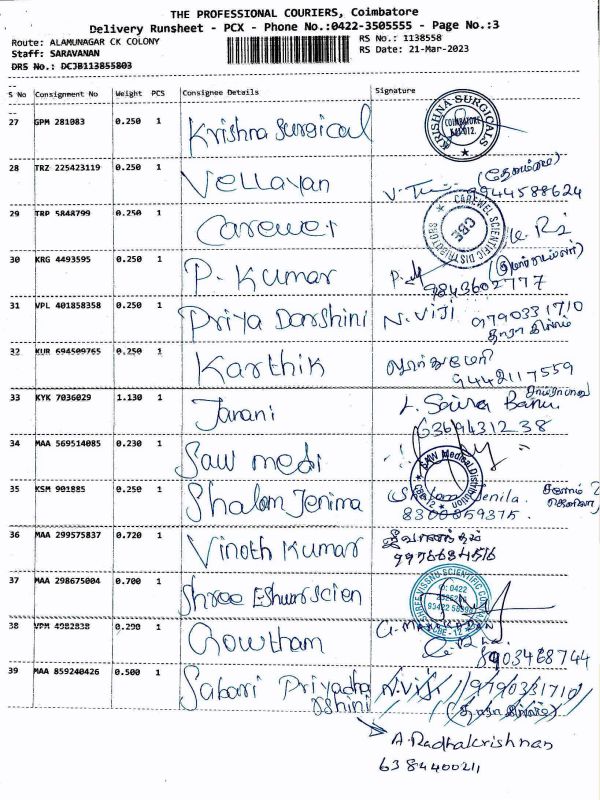 THE PROFESSIONAL COURIERS, Coimbatore
Delivery Runsheet - PCX - Phone No.:0422-3505555 - Page No.:3
Route: ALAMUNAGAR CK COLONY
RS No.: 1138558
Staff: SARAVANAN
RS Date: 21-Mar-2023
DRS No.: DCJB113855803
S No Consignment No Weight PCS Consignee Details Signature
27 GPM 281083 0.250 1 Krishna Surgical
KRISHNA SURGICALS
COIMBATORE
641012.
28 TRZ 225423119 0.250 1 Vellayan
9944588624
29 TRP 5848799 0.250 1 Carewel
CAREWEL SCIENTIFIC DISTRIBUTORS
CBE
30 KRG 4493595 0.250 1 P. Kumar
9843602777
31 VPL 401858358 0.250 1 Priya Darshini N.Viji 9790331710
32 KUR 694509765 0.250 1 Karthik
9442117559
33 KYK 7036029 1.130 1 Janani L. Saira Banu
6369431238
34 MAA 569514085 0.230 1 Saw medi
SAW Medical Distribution
CBE-12
35 KSM 901885 0.250 1 Shalom Jenima Shalom Jenila.
8300859375.
36 MAA 299575837 0.720 1 Vinoth Kumar ஜீவானந்தம்
9976684516
37 MAA 298675004 0.700 1 Shree Eshwar scien
CBE-12
38 VPM 4982838 0.290 1 Gowtham
8903468744
39 MAA 859240426 0.500 1 Sabari Priyadha
rshini
N.Viji 9790331710
A. Radhakrishnan
6384400211